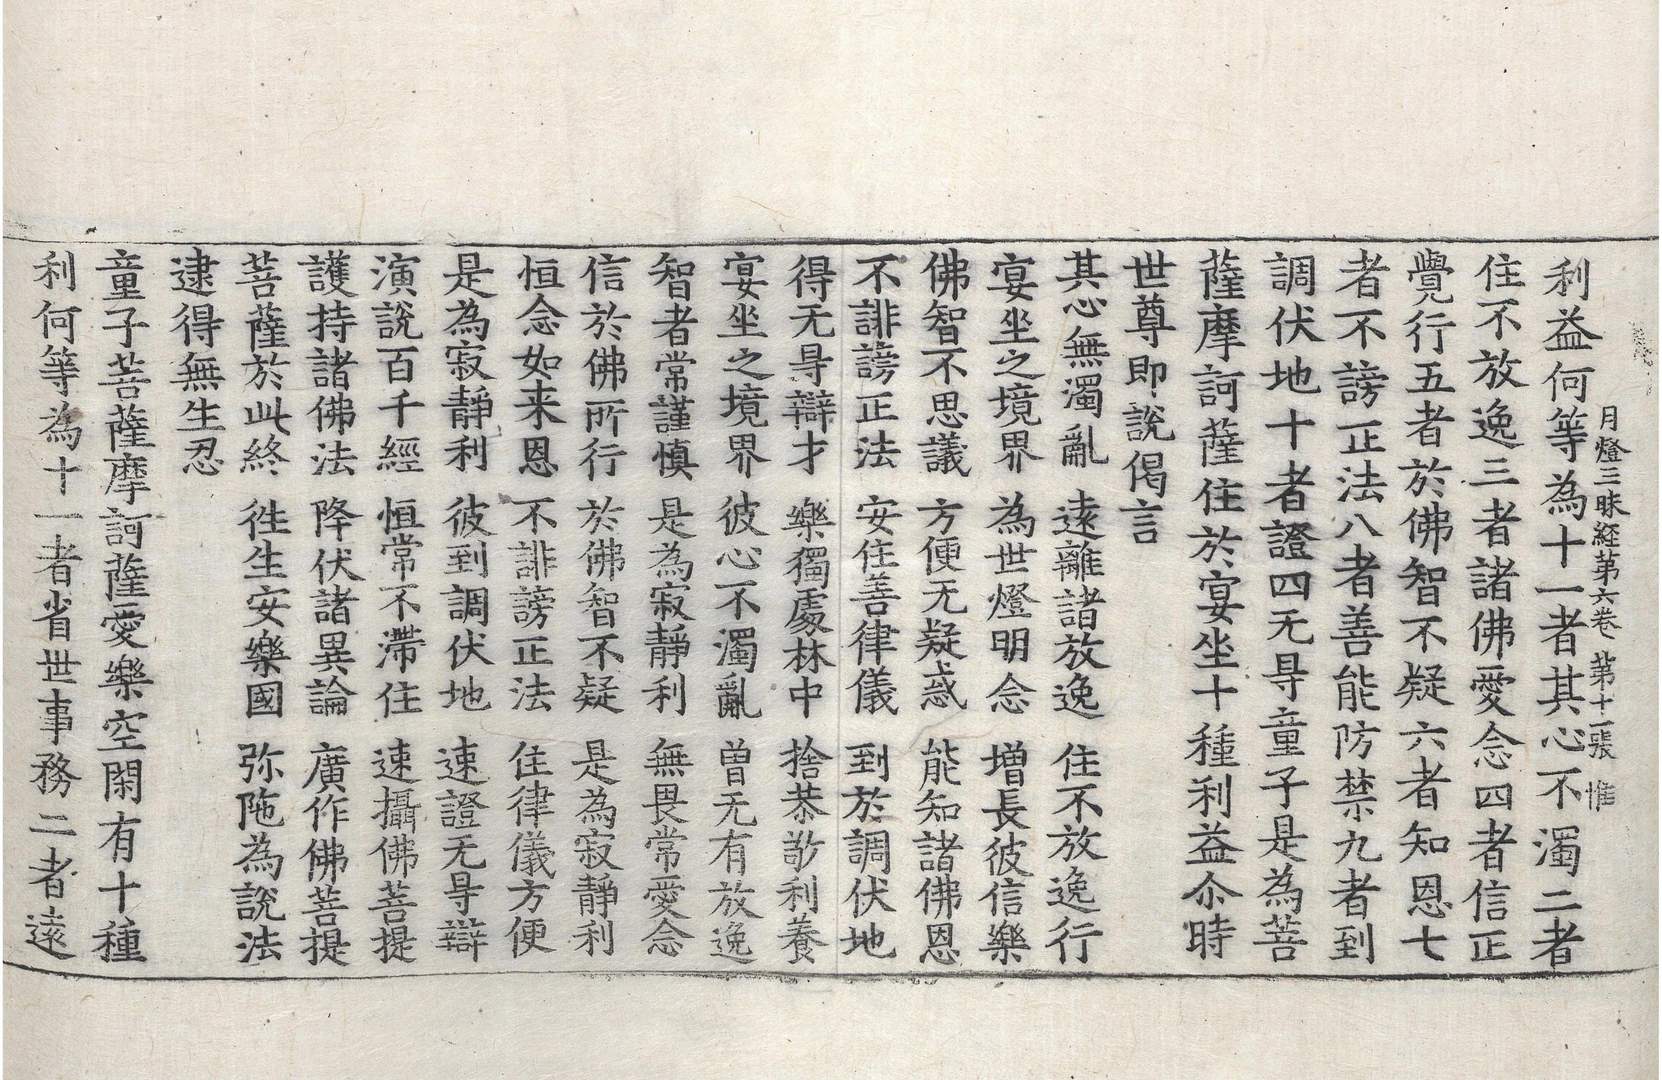 月燈三昧経苐六卷 苐十一張 惟
利益何等為十一者其心不濁二者
住不放逸三者諸佛愛念四者信正
覺行五者於佛智不疑六者知恩七
者不謗正法八者善能防禁九者到
調伏地十者證四无㝵童子是為菩
薩摩訶薩住於宴坐十種利益尒時
世尊即說偈言
其心無濁亂 遠離諸放逸 住不放逸行
宴坐之境界 為世燈明念 增長彼信樂
佛智不思議 方便无疑惑 能知諸佛恩
不誹謗正法 安住善律儀 到於調伏地
得无㝵辯才 樂獨處林中 捨恭敬利養
宴坐之境界 彼心不濁亂 曾无有放逸
智者常謹慎 是為寂靜利 無畏常愛念
信於佛所行 於佛智不疑 是為寂靜利
恒念如来恩 不誹謗正法 住律儀方便
是為寂靜利 彼到調伏地 速證无㝵辯
演說百千經 恒常不滯住 速攝佛菩提
護持諸佛法 降伏諸異論 廣作佛菩提
菩薩於此終 徃生安樂國 弥陁為說法
逮得無生忍
童子菩薩摩訶薩愛樂空閑有十種
利何等為十一者省世事務二者遠